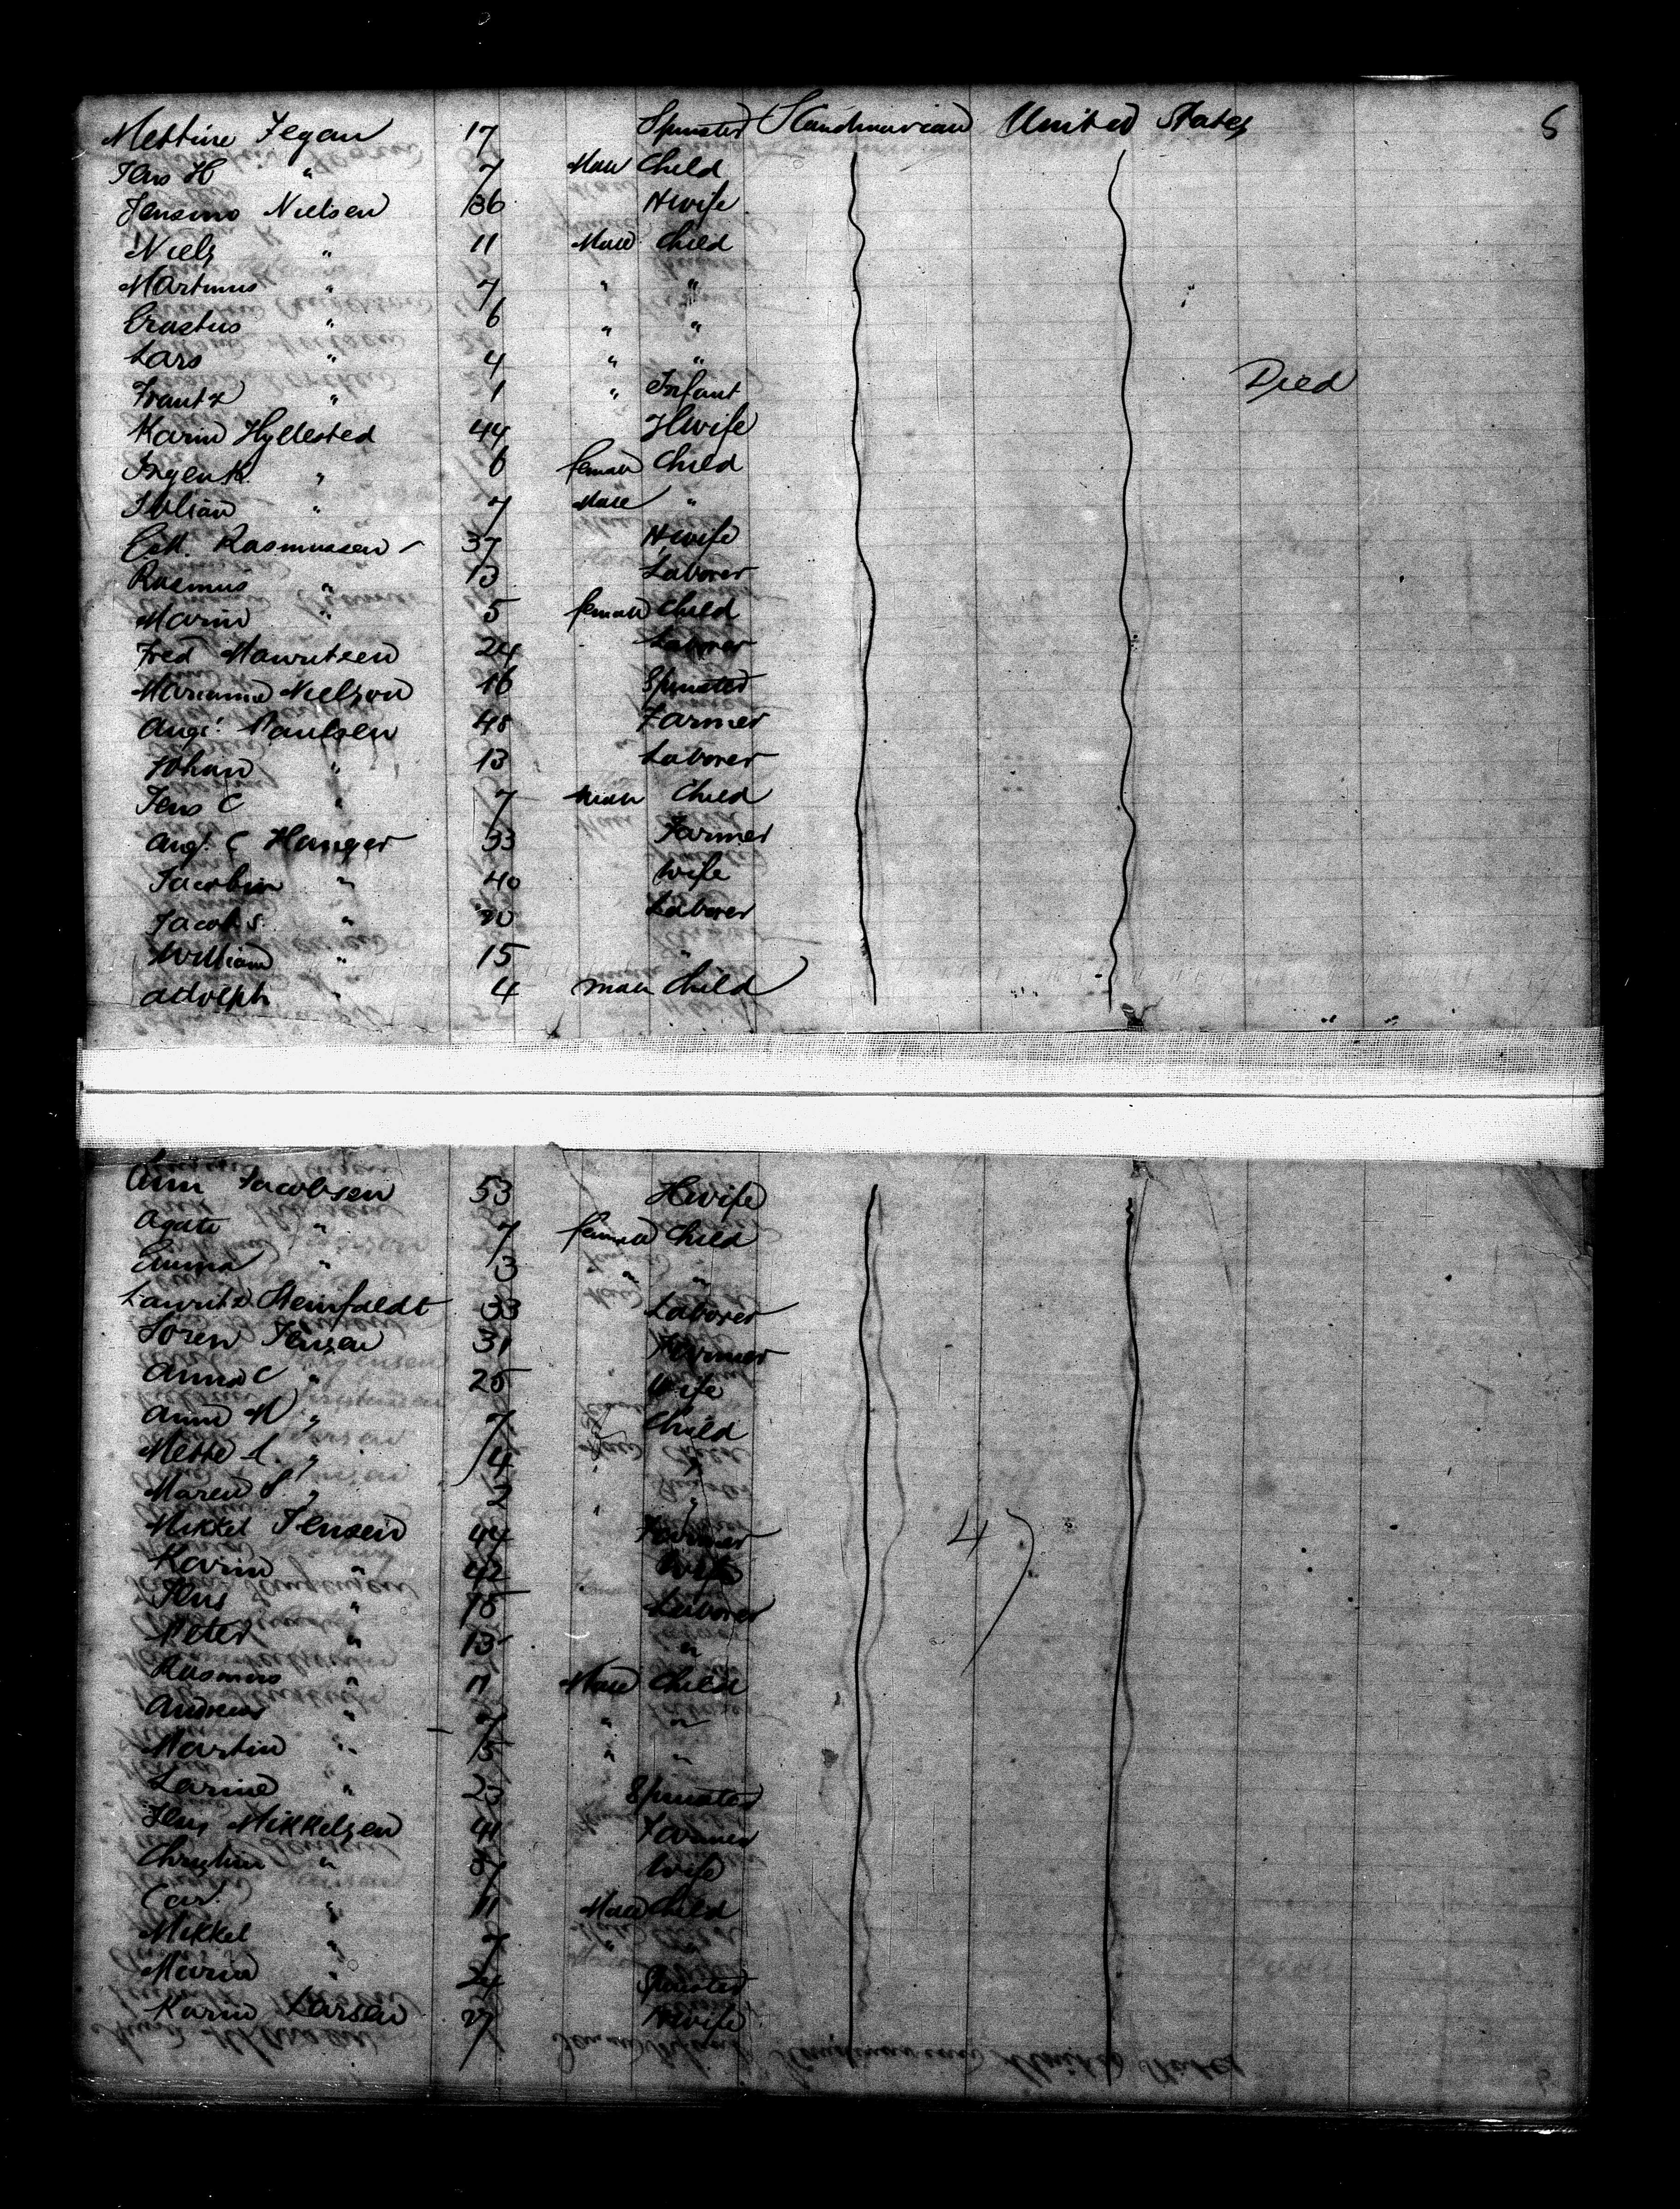 Mettine Fegan 17 Spinster Scandinavian United States 6
Jens H " 7 Male Child
Jensine Nielsen 36 Hwife
Niels " 11 Male Child
Martinus " 7 " "
Erastus " 6 " "
Lars " 4 " "
Frantz " 1 " Infant Died
Karin Hyllested 44 Hwife
Ingen K. " 6 female Child
Julian " 7 Male "
Rasmussen 37 Hwife
Rasmus " 13 Laborer
Marin " 5 female Child
Fred Mauritzen 24 Laborer
Marianne Nielson 16 Spinster
Paulsen 48 Farmer
Johan " 13 Laborer
Jens C " 7 Male Child
Aug. C Hanger 33 Farmer
Jacobin " 40 Wife
Jacob S. " 20 Laborer
William " 15 "
Adolph " 4 Male Child
Ann Jacobsen 53 Hwife
Agate " 7 female Child
Emma " 3 " "
Lauritz Steinfaldt 33 Laborer
Soren Jensen 31 Farmer
Anna C " 25 Wife
Anne M " 7 Child
Mette L. " 4 "
Maren S. " 2 "
Mikkel Jensen 44 Farmer 4
Karin " 42 Wife
Jens " 15 Laborer
Peter " 13 "
Rasmus " 11 Male Child
Andreas " 7 " "
Martin " 5 " "
Larine " 23 Spinster
Jens Mikkelsen 41 Farmer
Christine " 37 Wife
Carl " 11 Male Child
Mikkel " 7 " "
Maria " 24 Spinster
Karin Larsen 27 Hwife